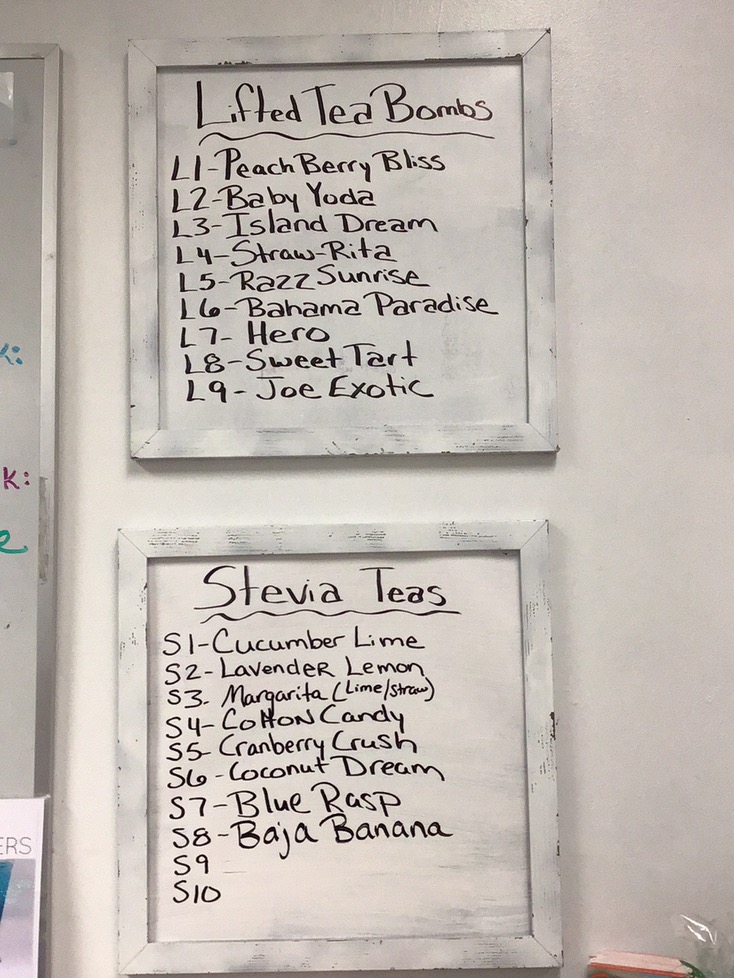 Lifted Tea Bombs
L1-Peach Berry Bliss
L2-Baby Yoda
L3-Island Dream
L4-Straw-Rita
L5-Razz Sunrise
L6-Bahama Paradise
L7- Hero
L8-Sweet Tart
L9- Joe Exotic
Stevia Teas
S1-Cucumber Lime
S2-Lavender Lemon
S3- Margarita (Lime/straw)
S4-Cotton Candy
S5-Cranberry Crush
S6-Coconut Dream
S7-Blue Rasp
S8-Baja Banana
S9
S10
K:
ERS